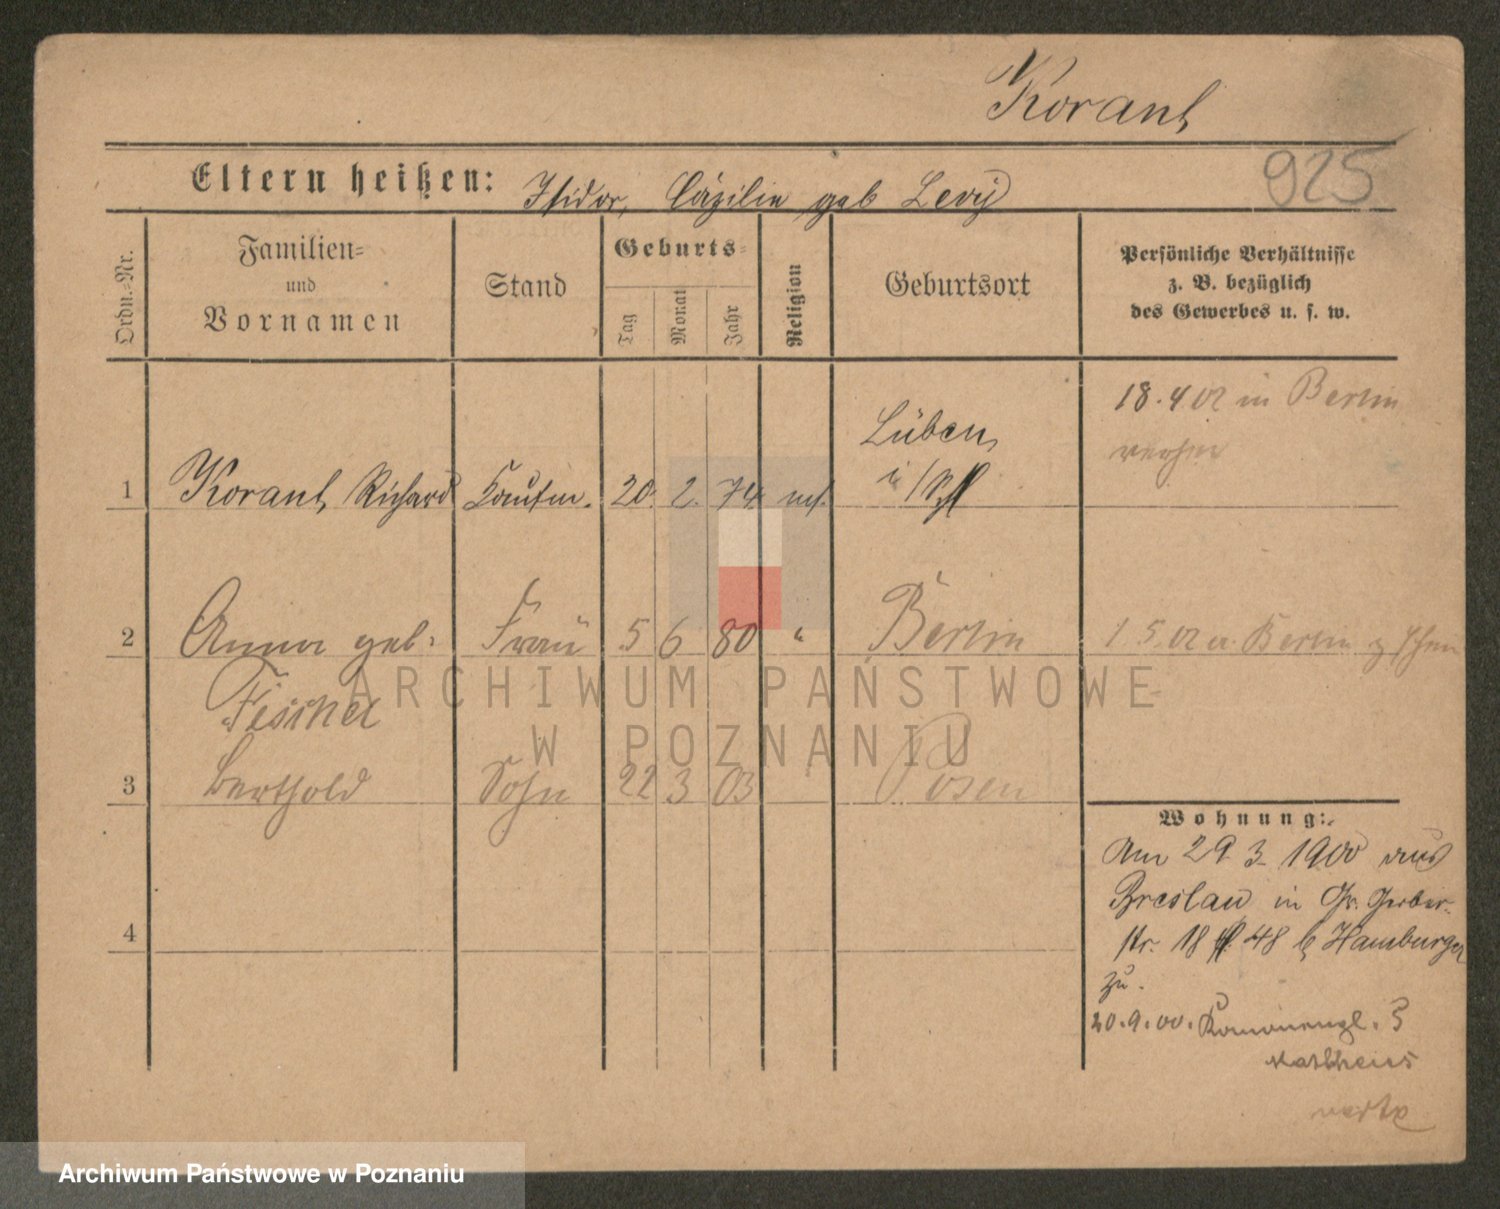 Korant
925
Eltern heißen: Isidor, Cäzilie geb Levy
Ordn.-Nr.
Familien-
und
Vornamen
Stand
Geburts-
Tag
Monat
Jahr
Religion
Geburtsort
Persönliche Verhältnisse
z. B. bezüglich
des Gewerbes u. s. w.
18.4 02 in Berlin
Lüben
1 Korant, Richard Kaufm. 20. 2. 74 mos.
2 Anna geb. Frau 5 6 80 " Berlin 1 5. 02 a. Berlin
Fischer
3 Berthold Sohn 22 3 03 Posen
4
Wohnung:
Am 29. 3. 1900 aus
Breslau in Gr. Gerber-
str. 18 48 b Hamburger
zu.
20.9.00.
ARCHIWUM PAŃSTWOWE
W POZNANIU
Archiwum Państwowe w Poznaniu